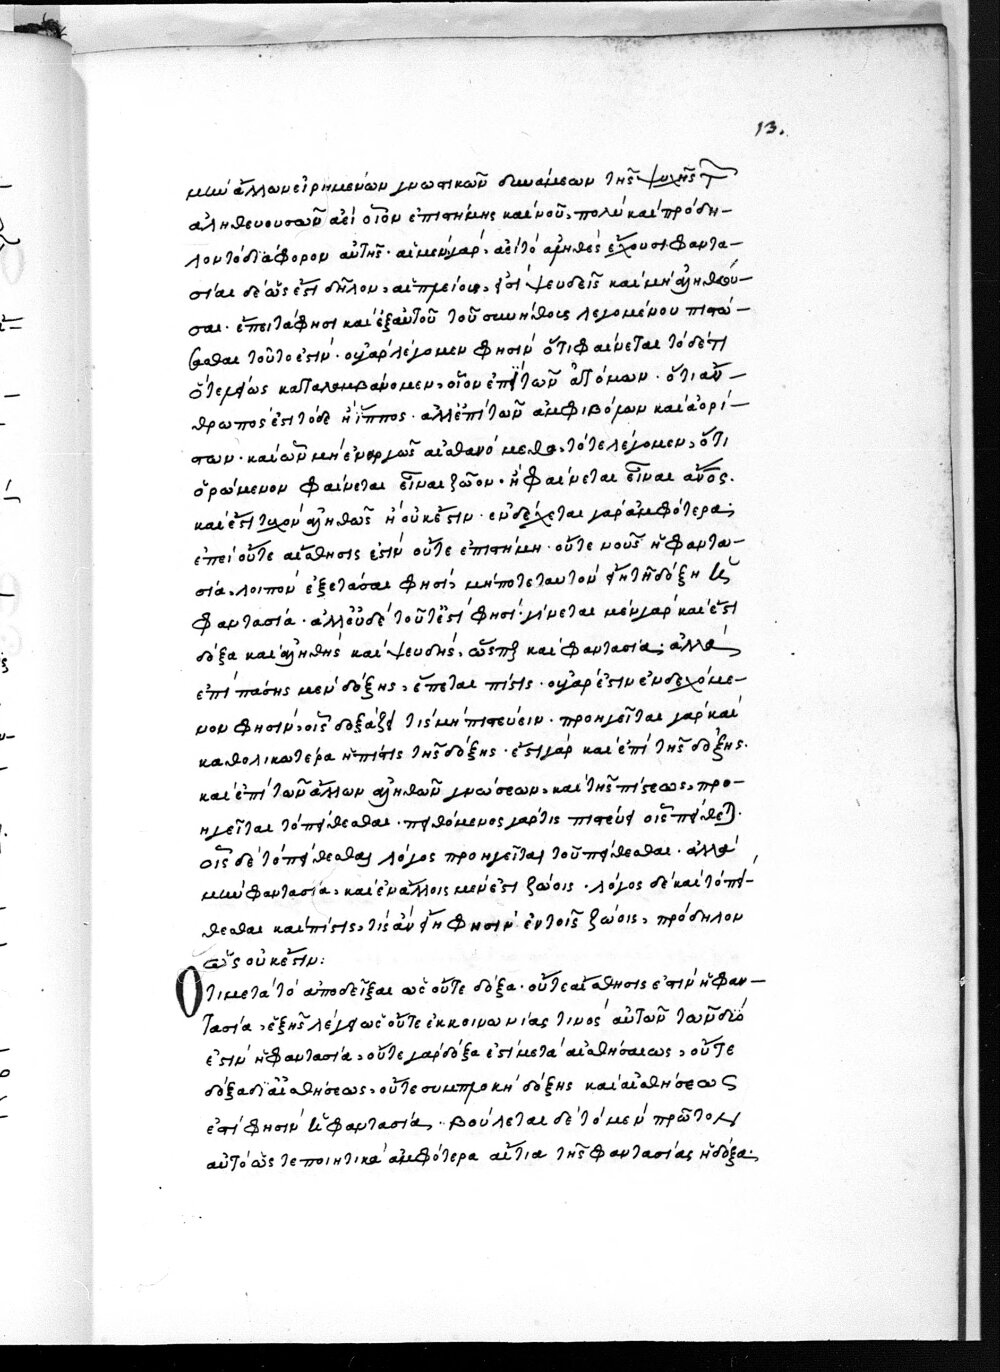 13.
μὴν ἄλλων εἰρημένων γνωστικῶν δυνάμεων τῆς ψυχῆς τ
ἀληθευουσῶν ἀεί οἷον ἐπιστήμης καὶ νοῦ, πολύ καὶ πρόδη-
λον τὸ διάφορον αὐτῆς· αἱ μὲν γάρ, ἀεί τὸ ἀληθές ἔχουσι φαντα-
σίαι δὲ ὥς ἐστι δῆλον, αἱ πλείους, ψευδεῖς καὶ μὴ ἀληθεύου-
σαι· ἔπειτα φησι καὶ ἐξ αὐτοῦ τοῦ συνήθως λεγομένου πιστώ-
σασθαι τοῦτο ἐστίν· οὐ γάρ λέγομεν φησίν ὅτι φαίνεται τόδε τι
ὅτε σαφῶς καταλαμβάνομεν, οἷον ἐπὶ τῶν ἀτόμων· ὅτι ἄν-
θρωπος ἐστὶ τόδε ἢ ἵππος· ἀλλ' ἐπὶ τῶν ἀμφιβόλων καὶ ἀορί-
στων· καὶ ὧν μὴ ἐναργῶς αἰσθανόμεθα, τότε λέγομεν, ὅτι
ὁρώμενον φαίνεται εἶναι ζῶον· ἢ φαίνεται εἶναι ἄνος.
καὶ ἔστι τυχόν ἀληθῶς ἢ οὐκ ἔστιν· ἐνδέχεται γάρ ἀμφότερα·
ἐπεί οὔτε αἴσθησις ἐστίν οὔτε ἐπιστήμη· οὔτε νοῦς ἡ φαντα-
σία, λοιπόν ἐξετάσαι φησί, μήποτε ταυτόν τῇ δόξῃ ἡ
φαντασία· ἀλλ' οὐδέ τοῦτ' ἐστί φησί· γίνεται μὲν γάρ καὶ ἔστι
δόξα καὶ ἀληθής καὶ ψευδής, ὥσπερ καὶ φαντασία· ἀλλά
ἐπὶ πάσης μέν δόξης, ἕπεται πίστις· οὐ γάρ ἐστιν ἐνδεχόμε-
νον φησίν, οἷς δοξάζει τις μὴ πιστεύειν· προηγεῖται γάρ καὶ
καθολικωτέρα ἡ πίστις τῆς δόξης· ἔστι γάρ καὶ ἐπὶ τῆς δόξης.
καὶ ἐπὶ τῶν ἄλλων ἀληθῶν γνώσεων, καὶ τῆς πίστεως, προ-
ηγεῖται τὸ πείθεσθαι· πειθόμενος γάρ τις πιστεύει οἷς πείθεται.
οἷς δὲ τὸ πείθεσθαι, λόγος προηγεῖται τοῦ πείθεσθαι· ἀλλά
μὴν φαντασία, καὶ ἐν ἄλλοις μέν ἐστι ζώοις· λόγος δὲ καὶ τὸ πεί-
θεσθαι καὶ πίστις, τίς ἄν εἴη φησίν ἐν τοῖς ζώοις, πρόδηλον
ὡς οὐκ ἔστιν:
Ὅτι μετά τὸ ἀποδεῖξαι ὡς οὔτε δόξα· οὔτε αἴσθησις ἐστίν ἡ φαν-
τασία, ἑξῆς λέγει ὡς οὔτε ἐκ κοινωνίας τινος αὐτῶν τῶν δύο
ἐστίν ἡ φαντασία, οὔτε γάρ δόξα ἐστί μετά αἰσθήσεως, οὔτε
δόξα δι' αἰσθήσεως, οὔτε συμπλοκή δόξης καὶ αἰσθήσεως
ἐστί φησίν ἡ φαντασία· βούλεται δὲ τὸ μέν πρῶτον
αὐτό ὥστε ποιητικά ἀμφότερα αἴτια τῆς φαντασίας ἡ δόξα,